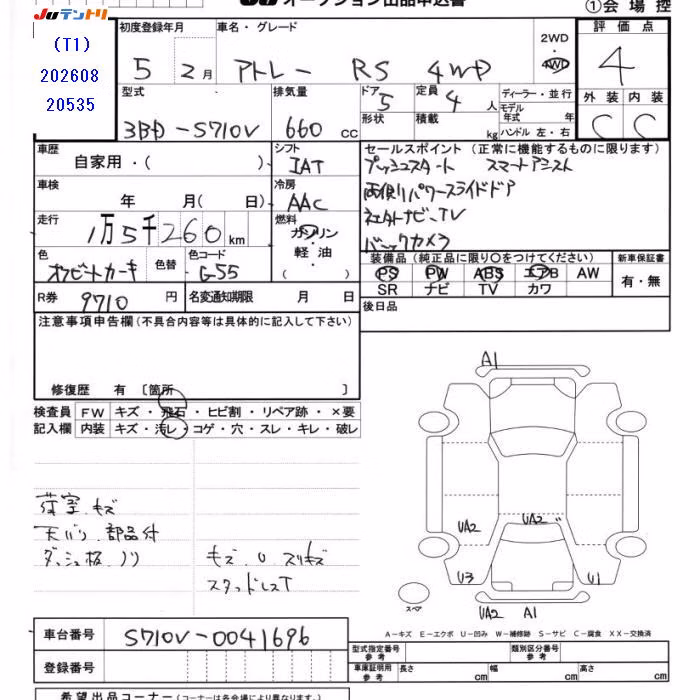 JUテントリ
オークション出品申込書
①会場控
(T1)
202608
20535
初度登録年月
車名・グレード
5 2月
アトレー RS 4WD
2WD
・
4WD
評価点
4
外装 内装
C C
型式
3BD-S710V
排気量
660 cc
ドア 5
形状
定員 4 人
積載 kg
ディーラー・並行
モデル年式 年
ハンドル 左・右
車歴
自家用・( )
シフト
IAT
セールスポイント (正常に機能するものに限ります)
プッシュスタート スマートアシスト
両側パワースライドドア
社外ナビ、TV
バックカメラ
車検
年 月( 日)
冷房
AAC
走行
1万5千260km
燃料
ガソリン
・
軽油
・
色
オフビートカーキ
色替
色コード
G-55
装備品 (純正品に限り○をつけてください)
PS PW ABS エアB AW
SR ナビ TV カワ
新車保証書
有・無
R券 9710 円
名変通知期限 月 日
後日品
注意事項申告欄(不具合内容等は具体的に記入して下さい)
修復歴 有 〔箇所 〕
検査員 FW キズ・飛石・ヒビ割・リペア跡・×要
記入欄 内装 キズ・汚レ・コゲ・穴・スレ・キレ・破レ
荷室 キズ
天バリ 部品付
ダッシュ板 ノリ
キズ U スリキズ
スタッドレスT
A1
UA2
UA2
U3
U1
スペア
UA2 A1
A-キズ E-エクボ U-凹み W-補修跡 S-サビ C-腐食 XX-交換済
車台番号 S710V-0041696
登録番号
型式指定番号 参考
類別区分番号 参考
車庫証明用 参考 長さ cm 幅 cm 高さ cm
希望出品コーナー (コーナーは各会場により異なります)